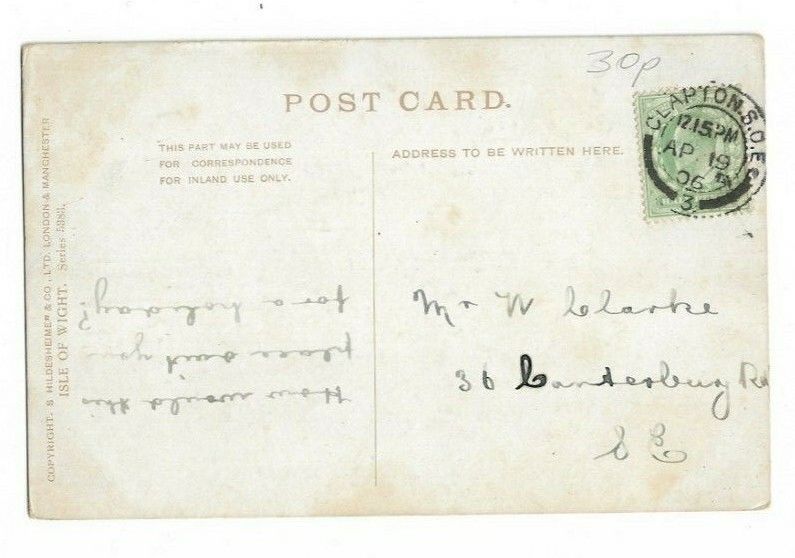 30p
POST CARD.
THIS PART MAY BE USED
FOR CORRESPONDENCE
FOR INLAND USE ONLY.
ADDRESS TO BE WRITTEN HERE.
CLAPTON.S.O.
12.15PM
AP 19
06
3
COPYRIGHT. S HILDESHEIMER & CO., LTD. LONDON & MANCHESTER
ISLE OF WIGHT. Series
How would this
place suit you
for a holiday?
Mr W Clarke
36 Canterbury Rd
S E